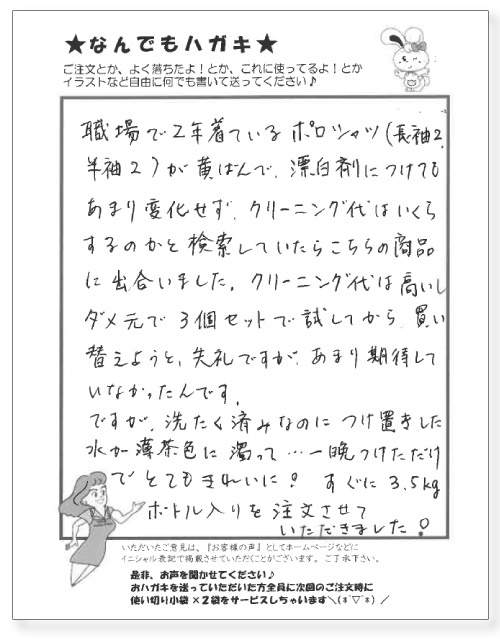 ★なんでもハガキ★
ご注文とか、よく落ちたよ！とか、これに使ってるよ！とか
イラストなど自由に何でも書いて送ってください♪
職場で2年着ているポロシャツ(長袖2、
半袖2)が黄ばんで、漂白剤につけても
あまり変化せず、クリーニング代はいくら
するのかと検索していたらこちらの商品
に出合いました。クリーニング代は高いし
ダメ元で3個セットで試してから、買い
替えようと、失礼ですが、あまり期待して
いなかったんです。
ですが、洗たく済みなのにつけ置きした
水が薄茶色に濁って…一晩つけただけ
でとてもきれいに！すぐに3.5kg
ボトル入りを注文させて
いただきました！
いただいたご意見は、『お客様の声』としてホームページなどに
イニシャル表記で掲載させていただくことがございます。ご了承下さい。
是非、お声を聞かせてください♪
おハガキを送っていただいた方全員に次回のご注文時に
使い切り小袋×2袋をサービスしちゃいます＼(*^▽^*)／